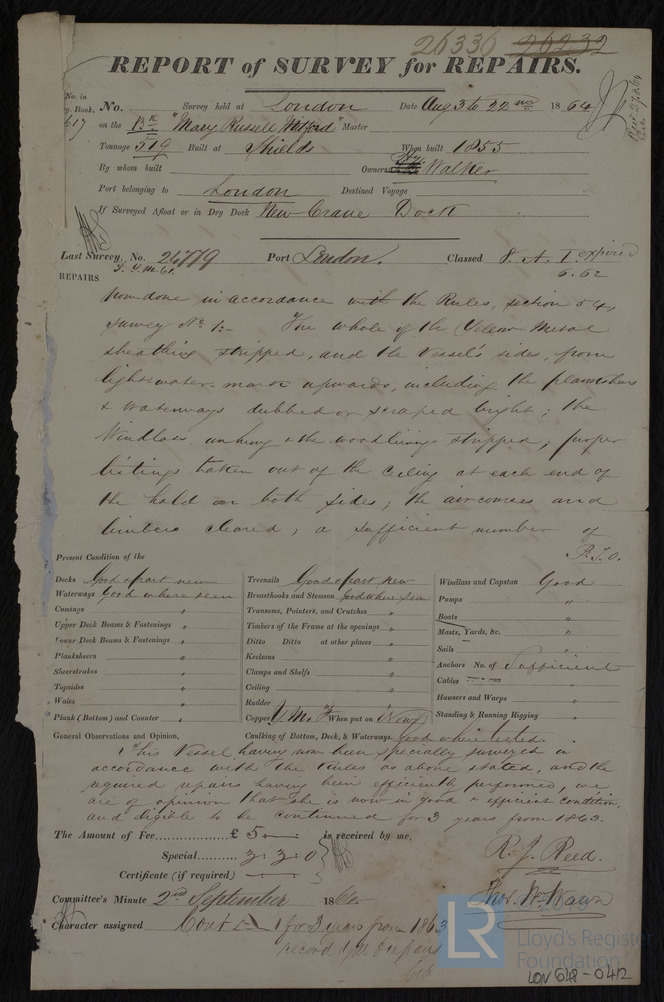 26336 26232
REPORT of SURVEY for REPAIRS.
No. in
Book. No. Survey held at London Date Aug 3 to 22nd 1864
617 on the Bk "Mary Russell Mitford" Master
Tonnage 319 Built at Shields When built 1855
By whom built Owners Walker
Port belonging to London Destined Voyage
If Surveyed Afloat or in Dry Dock New Crane Dock
Last Survey, No. 24779 Port London. Classed 8 A 1 expired
6.62
REPAIRS
Now done in accordance with the Rules, section 54,
Survey No 1:- The whole of the Yellow Metal
sheathing stripped, and the Vessel's sides, from
light water mark upwards, including the plansheers
& waterways dubbed or scraped bright; the
Windlass unhung & the woodlinings stripped; proper
listings taken out of the Ceiling at each end of
the hold on both sides; the aircourses and
limbers cleared; a sufficient number of
P.T.O.
Present Condition of the
Decks Good & part new Treenails Good & part new Windlass and Capstan Good
Waterways Good where seen Breasthooks and Stemson Good where seen Pumps "
Comings " Transoms, Pointers, and Crutches " Boats "
Upper Deck Beams & Fastenings " Timbers of the Frame at the openings " Masts, Yards, &c. "
Lower Deck Beams & Fastenings " Ditto Ditto at other places " Sails "
Planksheers " Keelsons " Anchors No. of Sufficient
Sheerstrakes " Clamps and Shelfs " Cables "
Topsides " Ceiling " Hawsers and Warps "
Wales " Rudder " Standing & Running Rigging "
Plank (Bottom) and Counter " Copper Y.M. & F When put on Now
General Observations and Opinion, Caulking of Bottom, Deck, & Waterways, Good where tested
This Vessel having now been specially surveyed in
accordance with the Rules as above stated, and the
required repairs having been efficiently performed, we
are of opinion that she is now in good & efficient condition,
and eligible to be continued for 3 years from 1863.
The Amount of Fee £ 5 is received by me,
Special 3:3:0 R. J. Reed.
Certificate (if required)
Committee's Minute 2nd September 186 Thos. Wm Wawn
Character assigned Contd A 1 for 3 years from 1863
record
LR
Lloyd's Register
Foundation
LON 648-0412